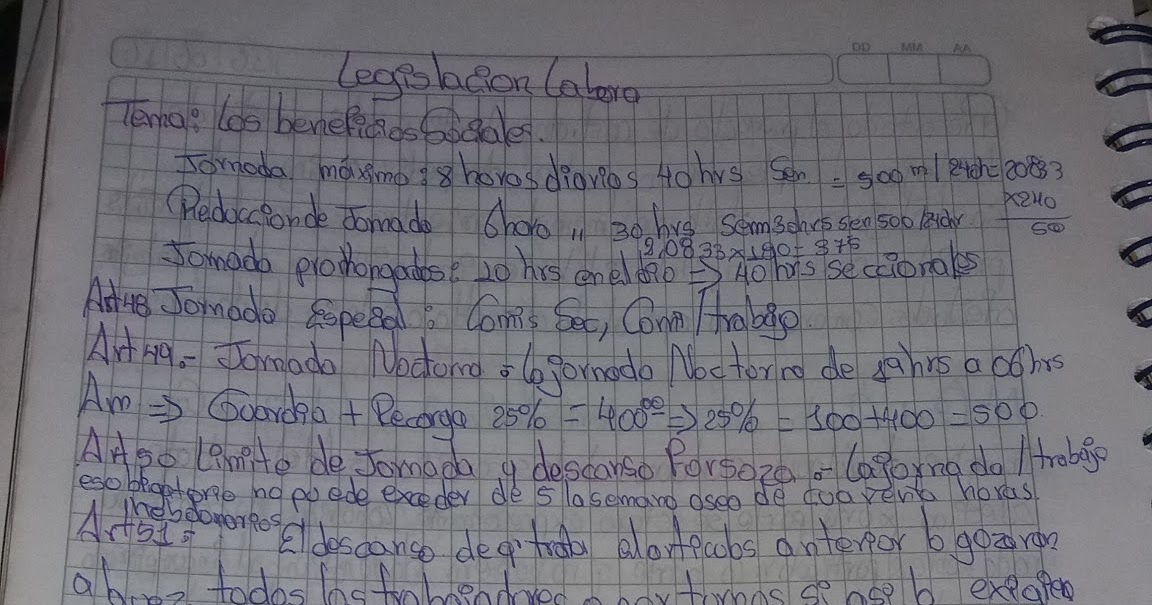 DD MM AA
Legislacion Labora
Tema: Los beneficios Sociales.
Jornada máximo: 8 horas diarios 40 hrs Sem = 500 m/ 240h= 20833
x240
50
Reduccion de Jornada 6 hora " 30 hrs Sem 30hrs sem 500
2,0833x190= 375
Jornada prolhongados: 10 hrs en el dia => 40 hrs seccionales
Art 48 Jornada Especal: Comis Sec, Comi/trabajo.
Art 49.- Jornada Nocturna: la jornada Nocturna de 19hrs a 06hrs
Am => Guardia + Recargo 25% = 400.00 => 25% = 100+400 = 500
Art 50 Limite de Jornada y descanso Forsozo.- la jornada/trabajo
es obligatorio no puede exceder de 5 la semana osea de cuarenta horas
hebdomarios
Art 51: El descanso de q' trata el articulo anterior lo gozaran
todos los trabajadores por turnos si asi lo exigien